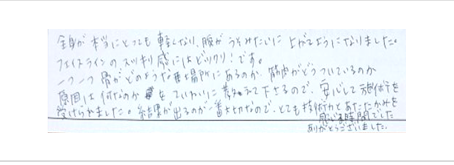 全身が本当にとっても軽くなり、腕がうそみたいに上がるようになりました。
フェイスラインのスッキリ感にはビックリ!です。
一つ一つ骨がどのような場所にあるのか、筋肉がどうついているのか
原因は何なのか ていねいに教えて下さるので、安心して施術を
受けられました。結果が出るのが一番大切なので、とても技術力とあたたかみを
感じる時間でした
ありがとうございました。